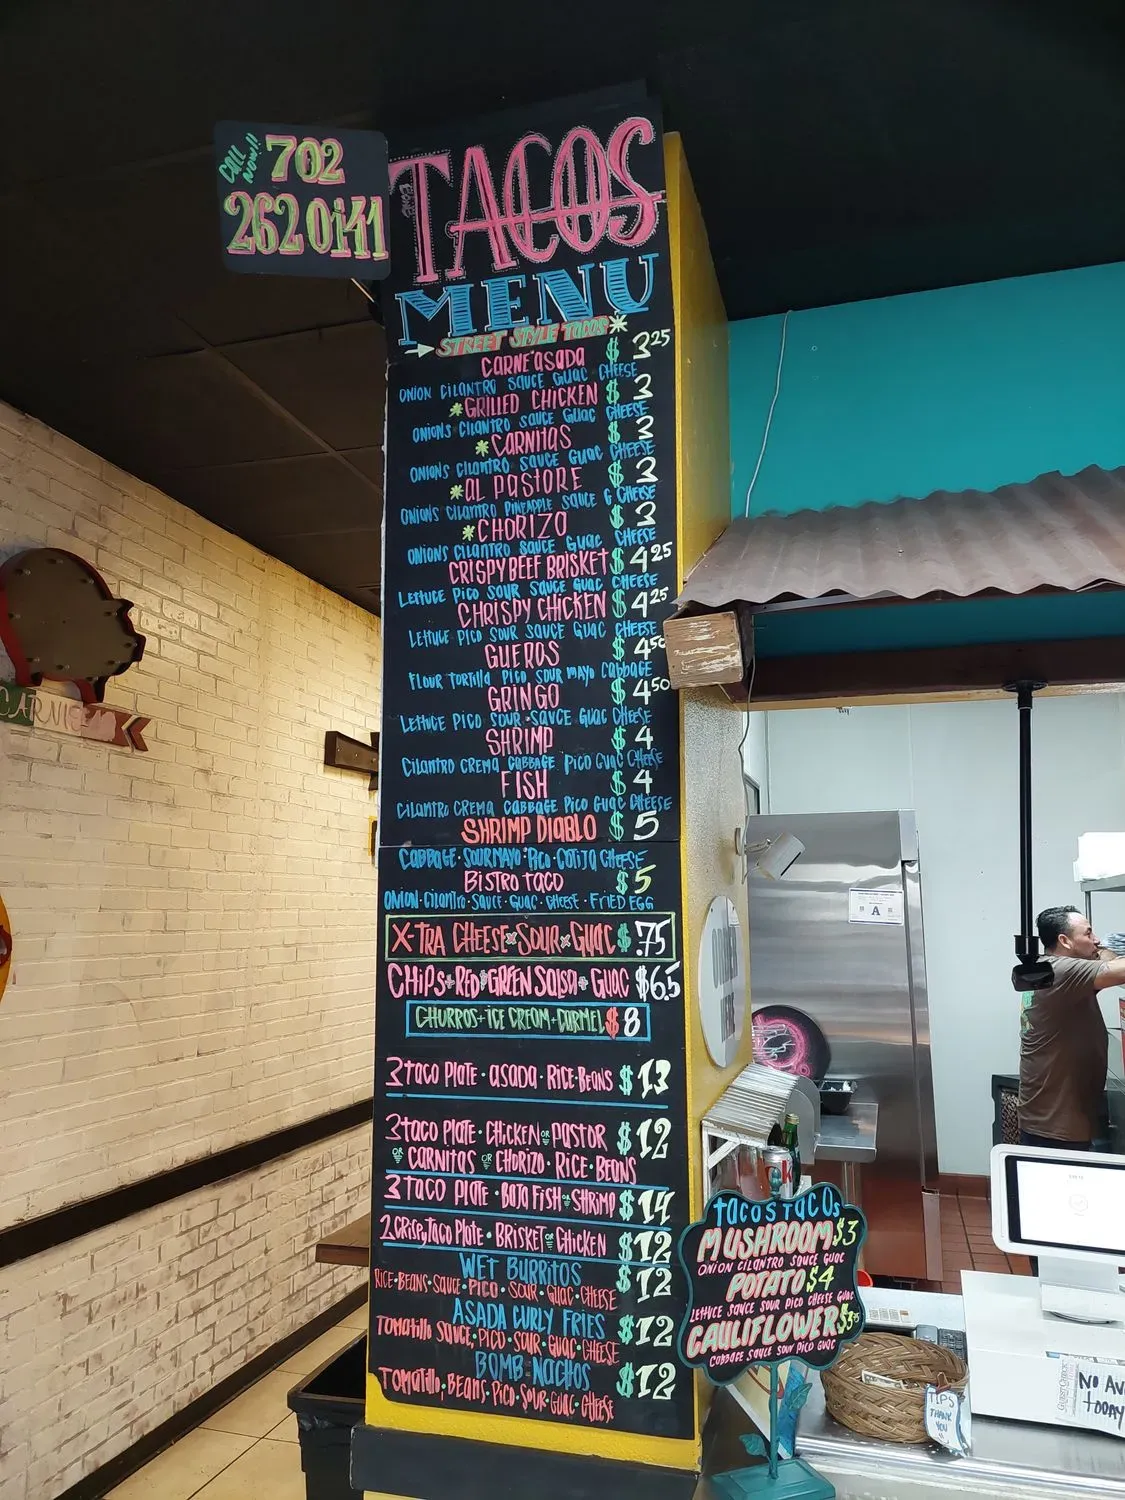 CALL NOW!! 702
262 0141
TACOS
MENU
STREET STYLE TACOS*
CARNE ASADA $3.25
ONION CILANTRO SAUCE GUAC CHEESE
*GRILLED CHICKEN $3
ONIONS CILANTRO SAUCE GUAC CHEESE
*CARNITAS $3
ONIONS CILANTRO SAUCE GUAC CHEESE
*AL PASTORE $3
ONIONS CILANTRO PINEAPPLE SAUCE G CHEESE
*CHORIZO $3
ONIONS CILANTRO SAUCE GUAC CHEESE
CRISPY BEEF BRISKET $4.25
LETTUCE PICO SOUR SAUCE GUAC CHEESE
CHRISPY CHICKEN $4.25
LETTUCE PICO SOUR SAUCE GUAC CHEESE
GUEROS $4.50
FLOUR TORTILLA PICO SOUR MAYO CABBAGE
GRINGO $4.50
LETTUCE PICO SOUR·SAVCE GUAC CHEESE
SHRIMP $4
CILANTRO CREMA CABBAGE PICO GUAC CHEESE
FISH $4
CILANTRO CREMA CABBAGE PICO GUAC CHEESE
SHRIMP DIABLO $5
CABBAGE·SOUR MAYO·PICO·COTIJA CHEESE
BISTRO TACO $5
ONION·CILANTRO·SAUCE·GUAC·CHEESE·FRIED EGG
X-TRA CHEESE×SOUR×GUAC $.75
CHIPS+RED+GREEN SALSA+GUAC $6.5
CHURROS+ICE CREAM+CARMEL $8
3 TACO PLATE·ASADA·RICE·BEANS $13
3 TACO PLATE·CHICKEN OR PASTOR $12
OR CARNITAS OR CHORIZO·RICE·BEANS
3 TACO PLATE·BAJA FISH OR SHRIMP $14
2 CRISPY TACO PLATE·BRISKET OR CHICKEN $12
WET BURRITOS $12
RICE·BEANS·SAUCE·PICO·SOUR·GUAC·CHEESE
ASADA CURLY FRIES $12
TOMATILLO SAUCE·PICO·SOUR·GUAC·CHEESE
BOMB NACHOS $12
TOMATILLO·BEANS·PICO·SOUR·GUAC·CHEESE
A
TACOS TACOS
MUSHROOM $3
ONION CILANTRO SAUCE GUAC
POTATO $4
LETTUCE SAUCE SOUR PICO CHEESE GUAC
CAULIFLOWER
CABBAGE SAUCE SOUR PICO GUAC
TIPS
THANK
YOU
NO AV
TODAY